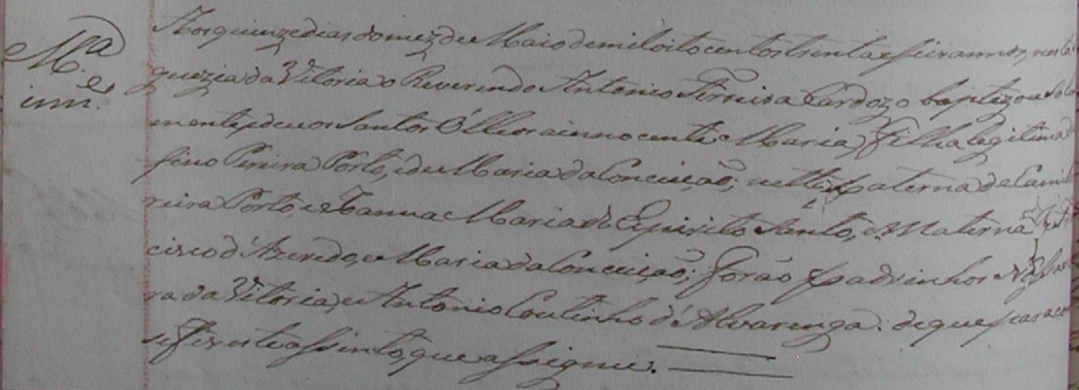 M.ª
e
inn.
Aos quinze dias do mez de Maio de mil oito centos trinta e seis annos, nesta
guezia da Vitoria o Reverendo Antonio Ferreira Cardozo baptizou sole
mente, e deu os Santos Olhos a innocente Maria, filha legitima de
fino Pereira Porto, e de Maria da Conceição; netta paterna de Camil
reira Porto, e Joanna Maria do Espirito Santo, e Materna
cisco d'Azeredo, e Maria da Conceição; forão padrinhos N. Senho
ra da Vitoria, e Antonio Coutinho d'Alvarenga: de que para con
se fiz este assento, que assignei.